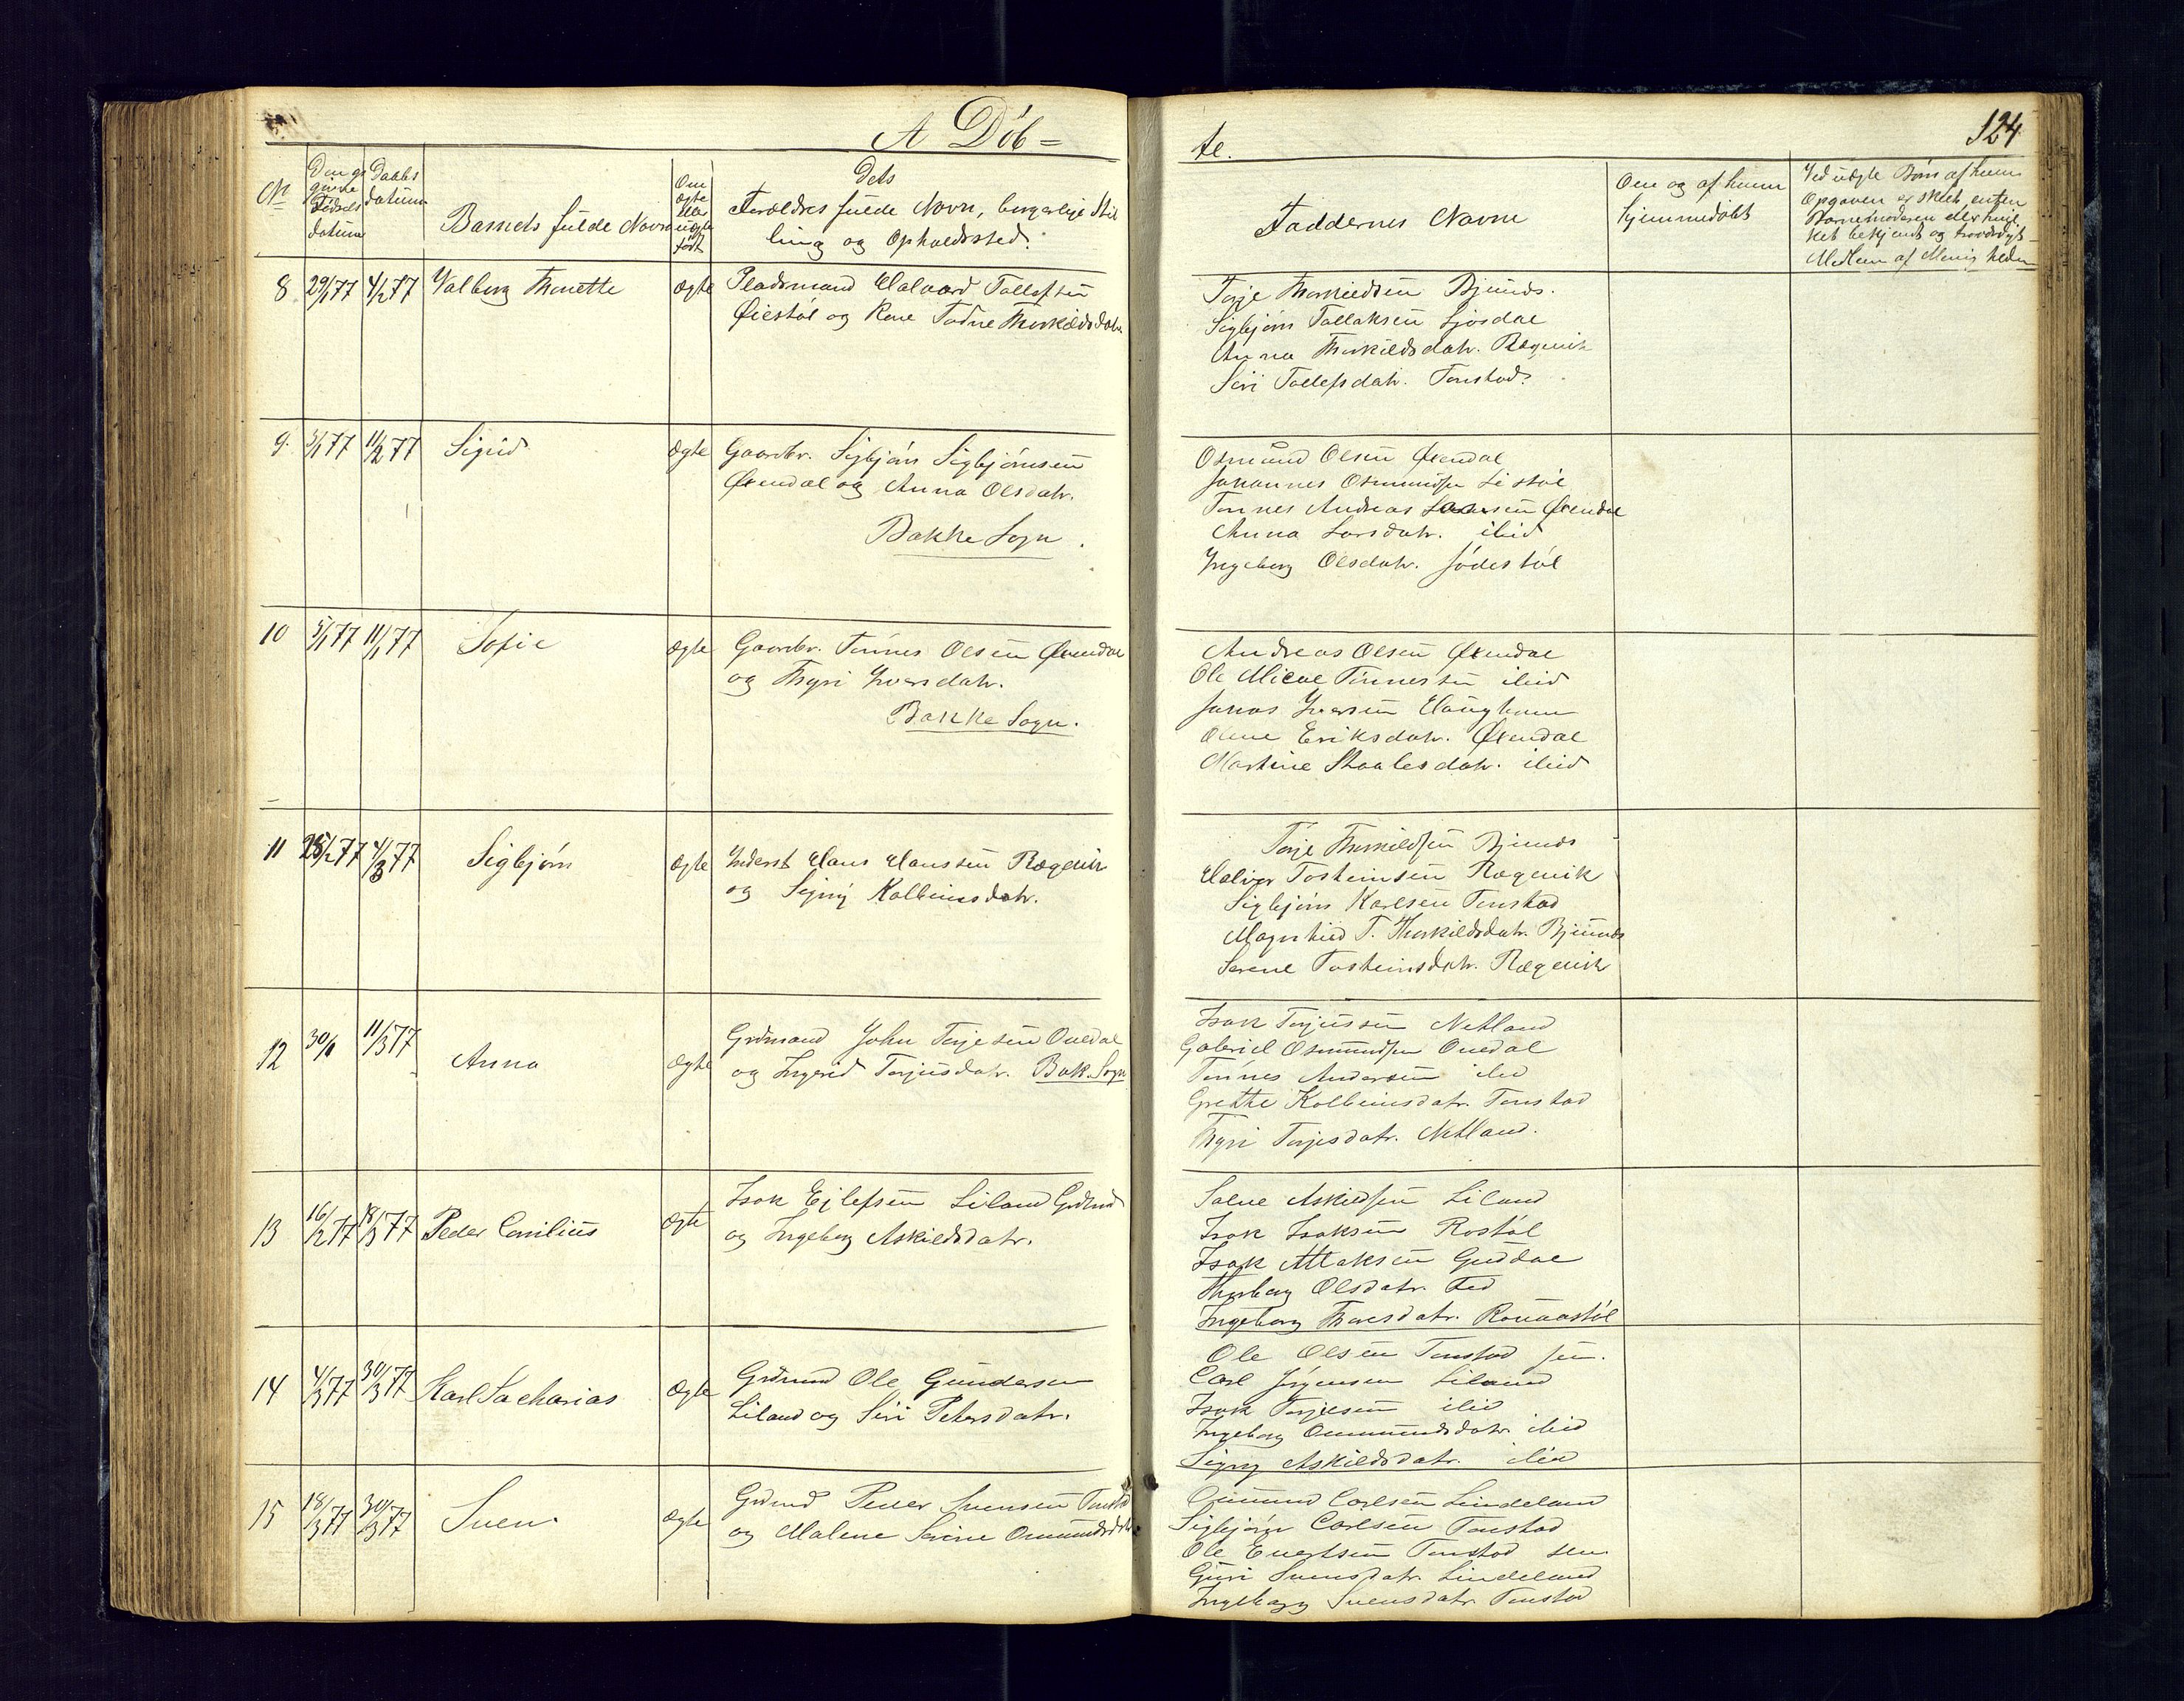 A Døb=
te.
124
No
Den an
givne
Fødsels
datum
Daabs
datum
Barnets fulde Navn
Om
ægte
eller
uægte
født
Dets
Forældres fulde Navn, borgerlige Stil
ling og Opholdssted.
Faddernes Navne
Om og af hvem
hjemmedøbt
Ved uægte Børn af hvem
Opgaven er skeet, enten
Barnemoderen eller hvil
ket bekjendt og troværdigt
Medlem af Menigheden
8 29/1 77 4/2 77 Valborg Thonette ægte Pladsmand Halvard Tollefsen
Øiestøl og Kone Todne Thorkildsdatr
Torje Thorkildsen Bjunds.
Sigbjørn Tollaksen Sjosdal
Anna Thorkildsdatr. Rægevik
Siri Tollefsdatr. Tonstad.
9. 3/1 77 11/2 77 Sigrid ægte Gaardbr. Sigbjørn Sigbjørnsen
Øxendal og Anna Olsdatr.
Bakke Sogn.
Osmund Olsen Øxendal
Johannes Osmundsen Listøl
Tønnes Andreas Larsen Øxendal
Anna Larsdatr. ibid
Ingeborg Olsdatr. Jødestøl
10 5/1 77 11/1 77 Sofie ægte Gaardbr. Tønnes Olsen Øxendal
og Thyri Iversdatr.
Bakke Sogn.
Andreas Olsen Øxendal
Ole Mical Tønnessen ibid
Jonas Iversen Haughom
Anne Eriksdatr. Øxendal
Martine Staalesdatr. ibid
11 25/2 77 4/3 77 Sigbjørn ægte Inderst Hans Hanssen Rægevik
og Signy Kolbeinsdatr.
Torje Thorkildsen Bjunds
Halvor Tosteinsen Rægevik
Sigbjørn Karlsen Tonstad
Magnhild T. Thorkildsdatr. Bjunds
Serene Tosteinsdatr. Rægevik
12 30/1 11/3 77 Anna ægte Grdmand John Terjesen Ouedal
og Ingrid Terjusdatr. Bak. Sogn
Isak Terjusen Netland
Gabriel Osmundsen Ouedal
Tønnes Andersen ibid
Grethe Kolbeinsdatr. Tonstad
Thyri Terjesdatr. Netland.
13 16/2 77 18/3 77 Peder Emilius ægte Isak Ejlefsen Liland Grdmd
og Ingeborg Askildsdatr.
Salve Askildsen Liland
Isak Isaksen Rostøl
Isak Atlaksen Guddal
Thorborg Olsdatr. Fed
Ingeborg Thoresdatr. Rouaastøl
14 4/3 77 30/3 77 Karl Sacharias ægte Grdmd Ole Gundersen
Liland og Siri Petersdatr.
Ole Olsen Tonstad sen.
Carl Jørgensen Liland
Isak Terjesen ibid
Ingeborg Ommundsdatr ibid
Signy Askildsdatr. ibid
15 18/3 77 30/3 77 Sven. ægte Grdmd Peder Svensen Tonstad
og Malene Serine Omundsdatr
Gumund Carlsen Lindeland
Sigbjørn Carlsen Tonstad
Ole Evertsen Tonstad sen.
Guri Svensdatr. Lindeland
Ingeborg Svensdatr Tonstad